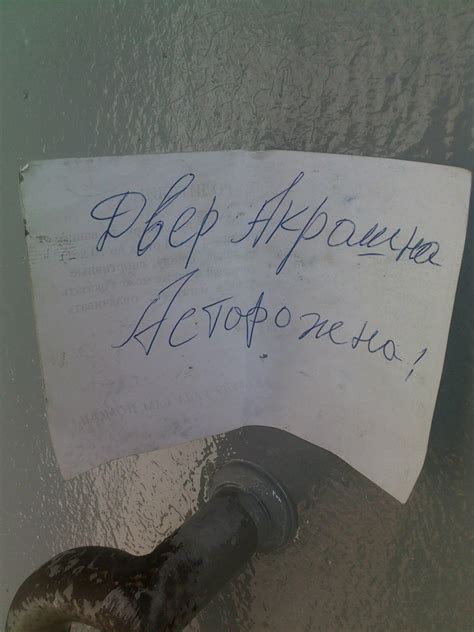 Двер Акрашна
Асторожна!